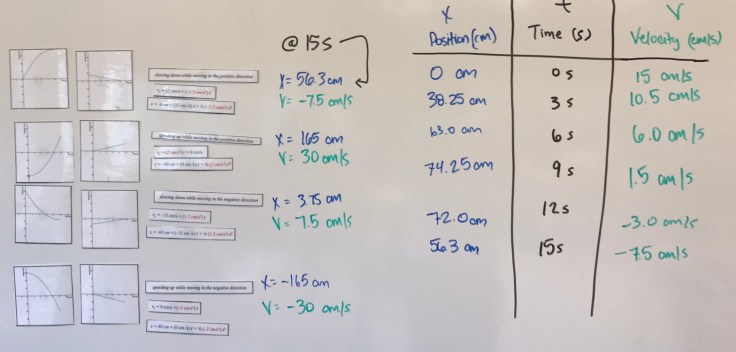 slowing down while moving in the positive direction
speeding up while moving in the positive direction
slowing down while moving in the negative direction
speeding up while moving in the negative direction
@ 15s
X= 56.3 cm
V= -7.5 cm/s
X= 165 cm
V= 30 cm/s
X= 3.75 cm
V= 7.5 cm/s
X= -165 cm
V= -30 cm/s
X t V
Position (cm) Time (s) Velocity (cm/s)
0 cm 0 s 15 cm/s
38.25 cm 3 s 10.5 cm/s
63.0 cm 6 s 6.0 cm/s
74.25 cm 9 s 1.5 cm/s
72.0 cm 12 s -3.0 cm/s
56.3 cm 15 s -7.5 cm/s